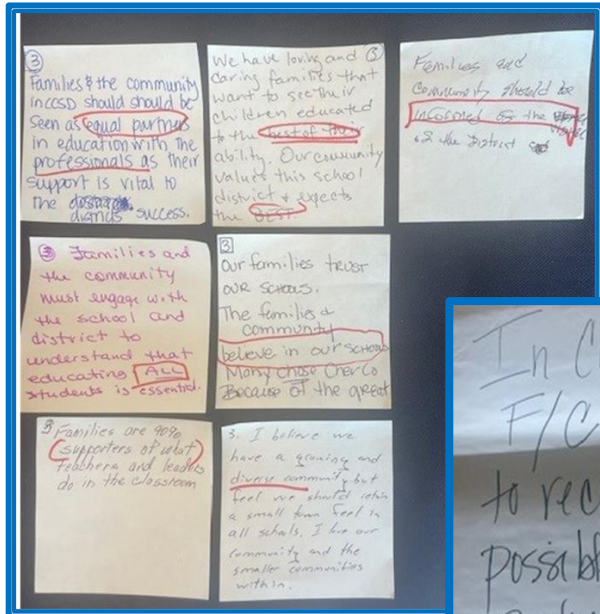 ③
Families & the community
in CCSD should should be
seen as equal partners
in education with the
professionals as their
support is vital to
the district's success.
We have loving and ③
caring families that
want to see their
children educated
to the best of their
ability. Our community
values this school
district & expects
the BEST.
Families and
community should be
informed of the
of the district
③ Families and
the community
must engage with
the school and
district to
understand that
educating ALL
students is essential.
3
Our families trust
our schools.
The families &
community
believe in our schools
Many chose Cher Co
Because of the great
3 Families are 90%
supporters of what
teachers and leaders
do in the classroom
3. I believe we
have a growing and
diverse community but
feel we should retain
a small town feel in
all schools. I love our
community and the
smaller communities
within.
In C
F/C
to rec
possib